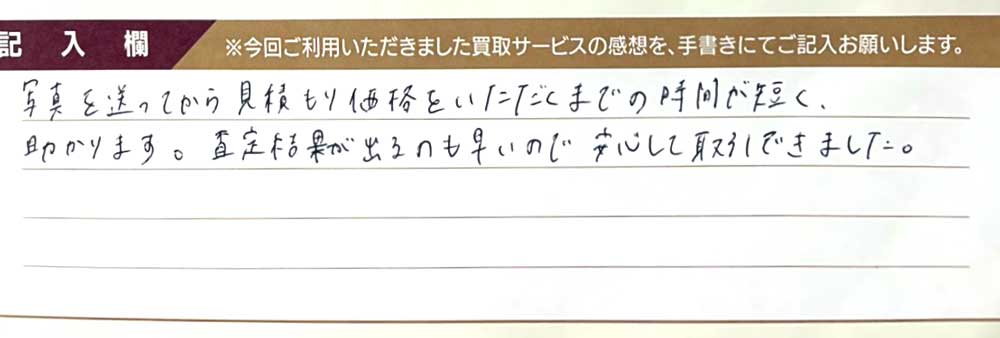 記入欄
※今回ご利用いただきました買取サービスの感想を、手書きにてご記入お願いします。
写真を送ってから見積もり価格をいただくまでの時間が短く、
助かります。査定結果が出るのも早いので安心して取引できました。